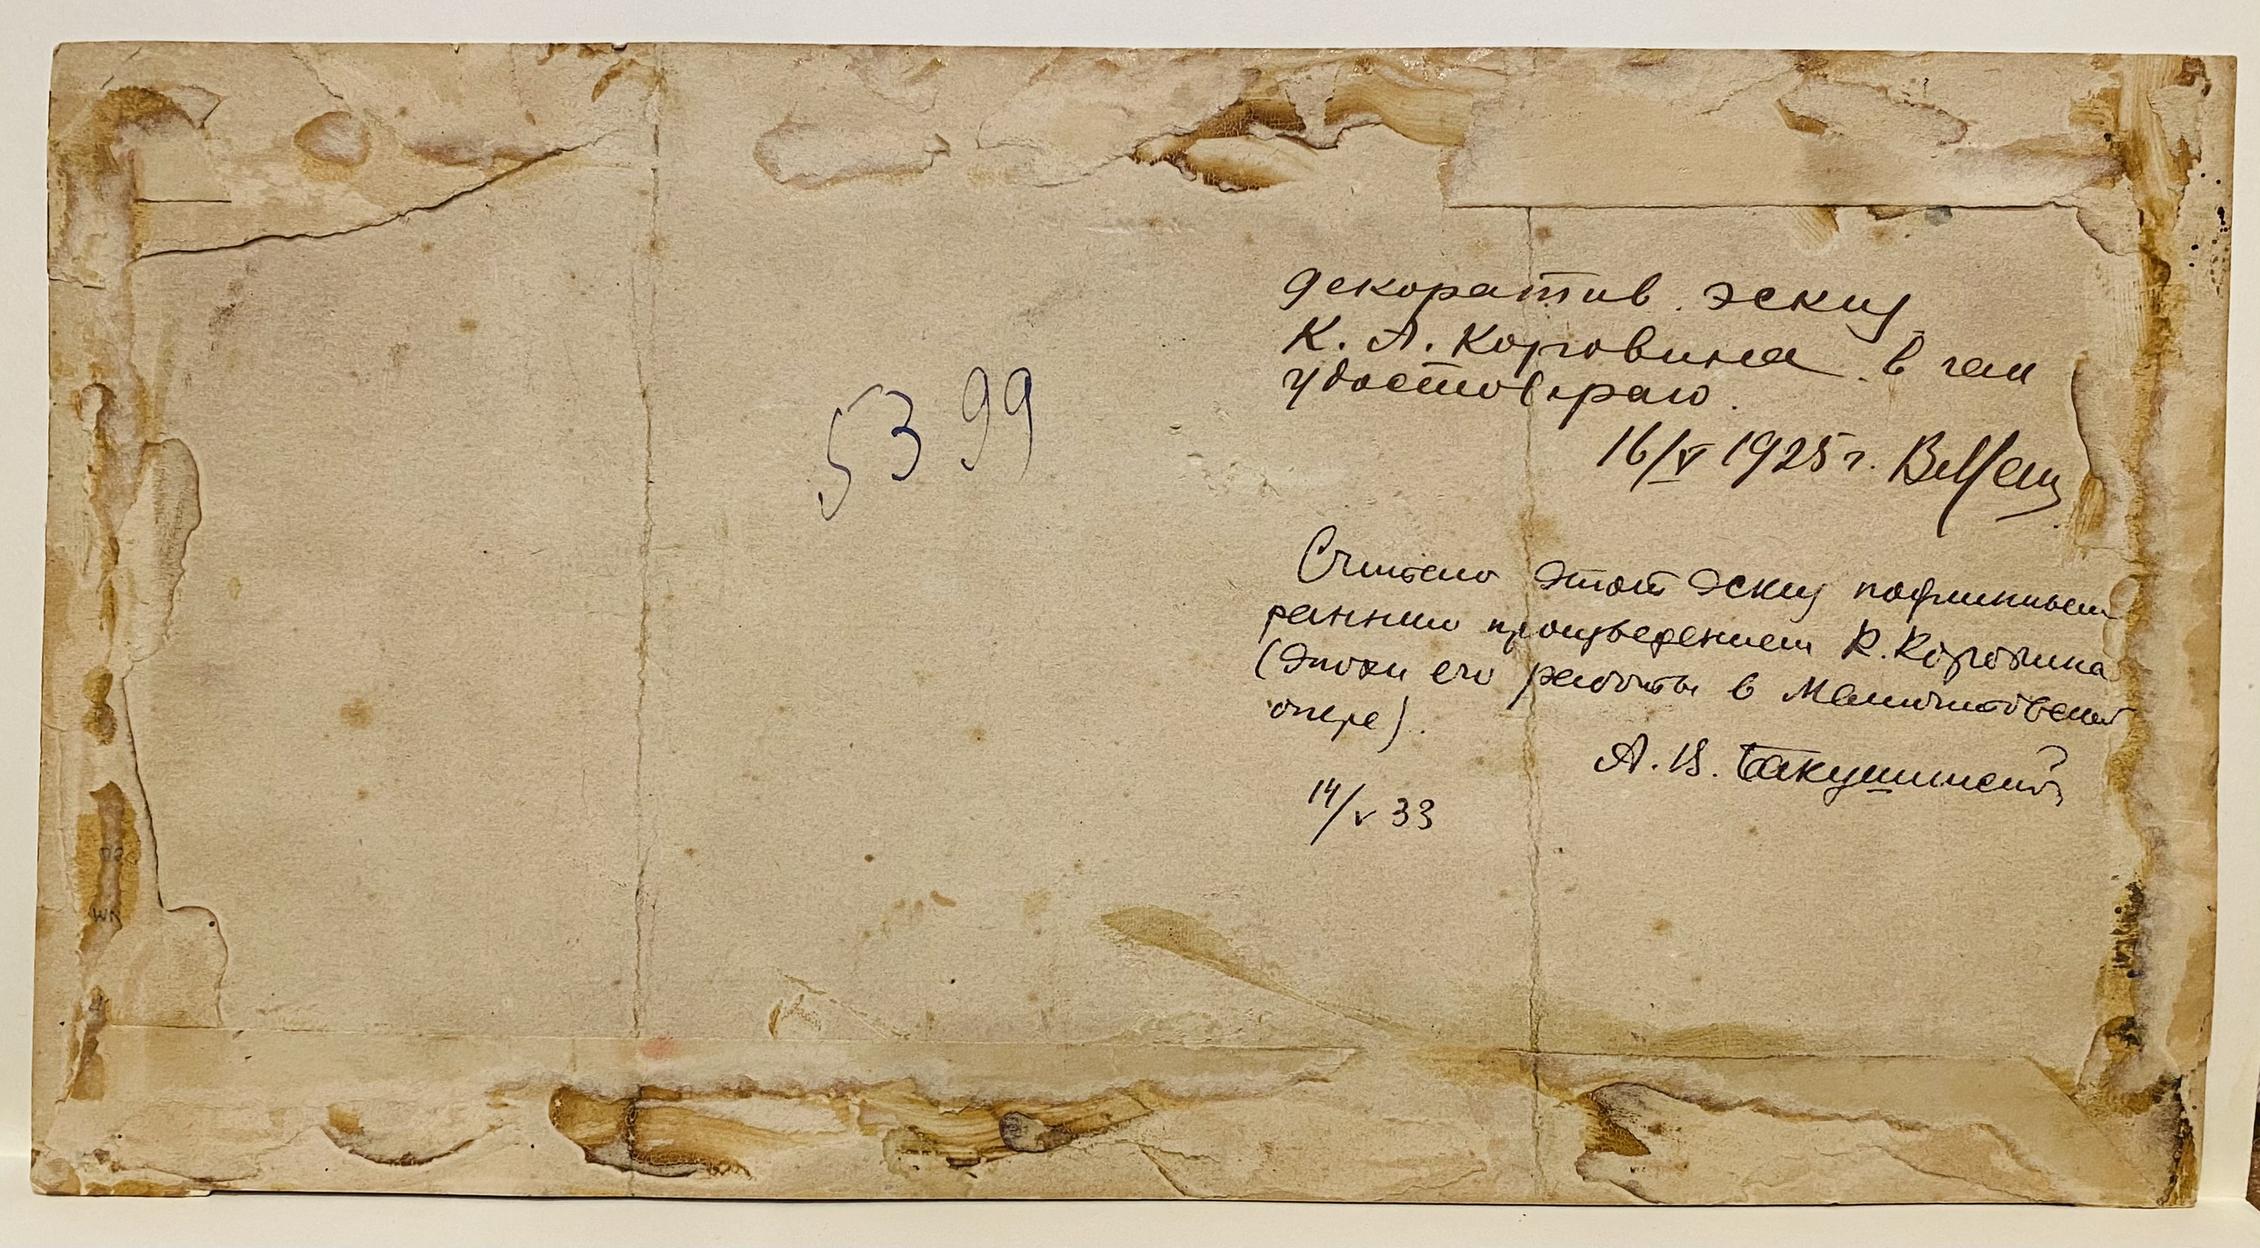 5399
декоратив. эскиз
К. А. Коровина в чем
удостоверяю.
16/V 1925 г.
Считаю этот эскиз подлинным
ранним произведением К. Коровина
(эпохи его работы в Мамонтовской
опере).
А. В. Бакушинский
14/V 33